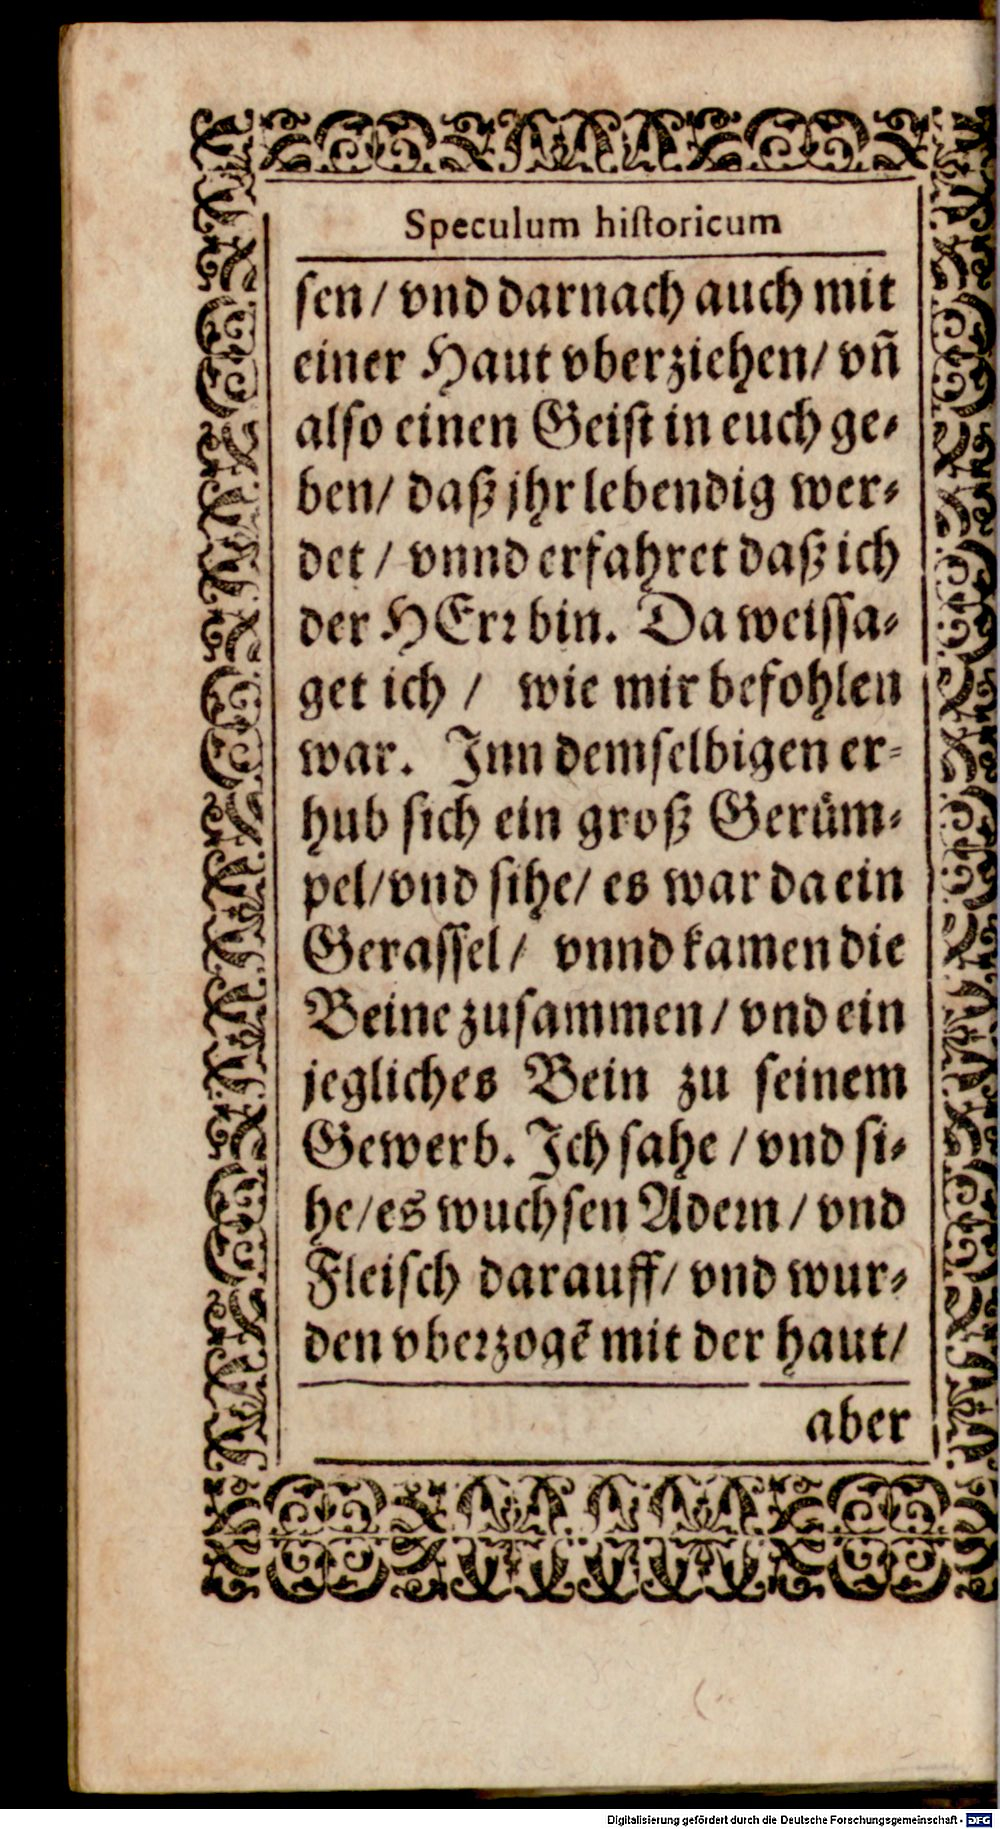 Speculum hiſtoricum
ſen/ vnd darnach auch mit
einer Haut vberziehen/ vñ
alſo einen Geiſt in euch ge⸗
ben/ daß jhr lebendig wer⸗
det / vnnd erfahret daß ich
der HErꝛ bin. Da weiſſa⸗
get ich / wie mir befohlen
war. Inn demſelbigen er⸗
hub ſich ein groß Geruͤm⸗
pel/vnd ſihe/ es war da ein
Geraſſel/ vnnd kamen die
Beine zuſammen/ vnd ein
jegliches Bein zu ſeinem
Gewerb. Ich ſahe / vnd ſi⸗
he/es wuchſen Adeꝛn / vnd
Fleiſch darauff/ vnd wur⸗
den vbeꝛzogẽ mit der haut/
aber
Digitalisierung gefördert durch die Deutsche Forschungsgemeinschaft - DFG